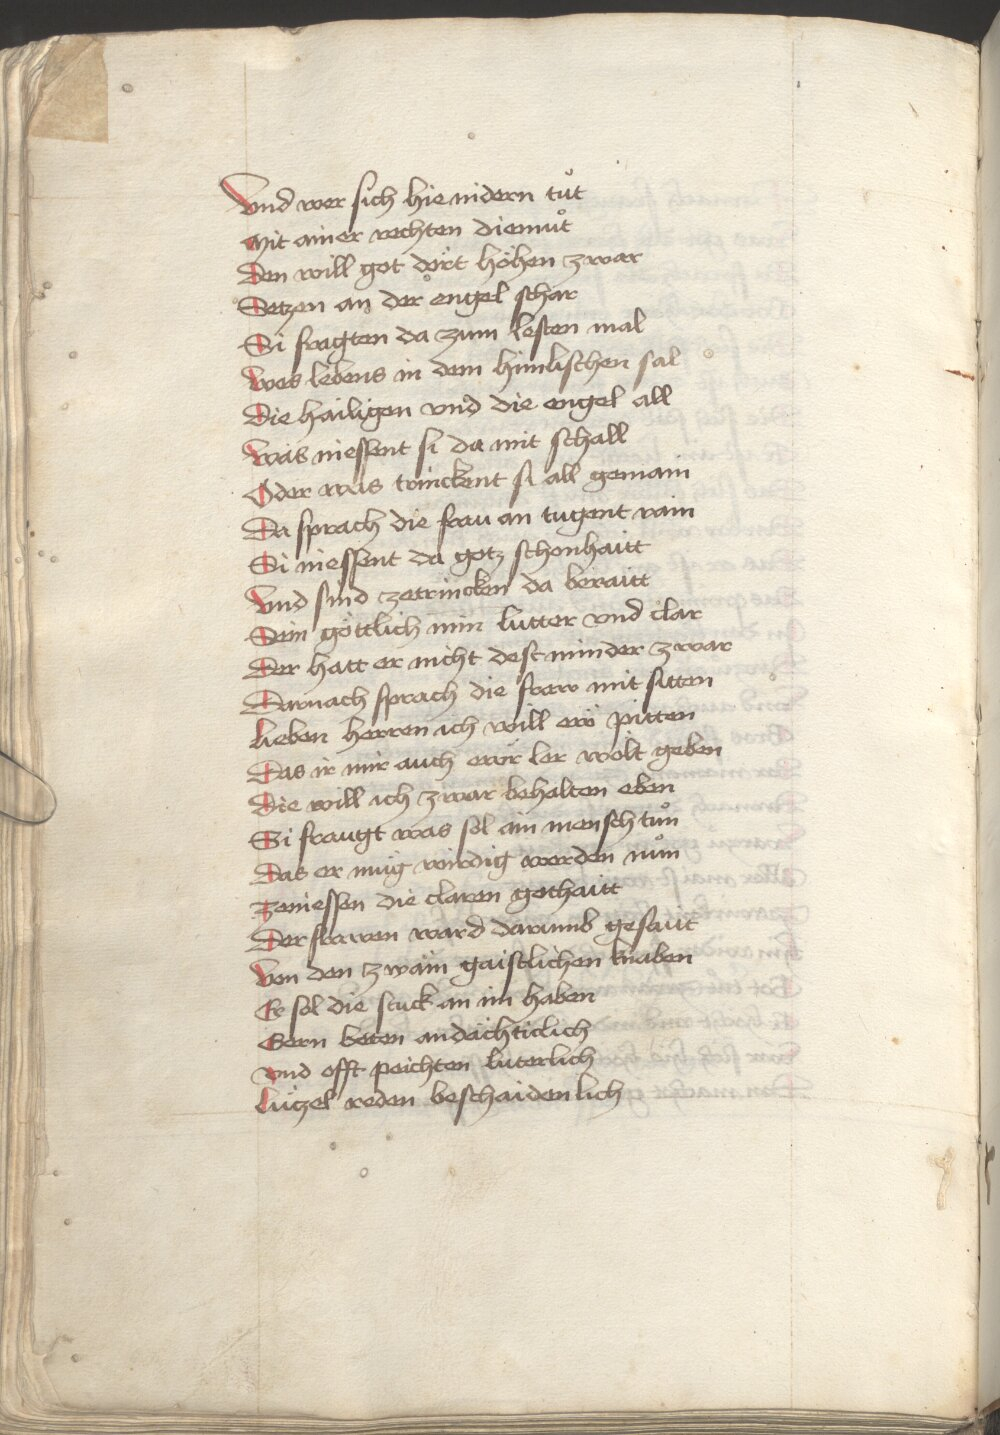 Vnd wer sich hie nidern tuͦt
Mit ainer rechten diemuͦt
Den will got dört höhen zwar
Setzen an der engel schar
Si fragten da zum lesten mal
Wes lebens in dem himlischen sal
Die hailigen vnd die engel all
Was niessent si da mit schall
Oder was trinckent si all gemain
Da sprach die frau an tugent rain
Si niessent da gotz schonhaitt
Vnd sind zetrincken da beraitt
Sein göttlich min lutter vnd clar
Der hatt er nicht dest minder zwar
Darnach sprach die frew mit sitten
Lieben herren ich will erö pitten
Das ir mir auch ewr ler wölt geben
Die will ich zwar behalten eben
Si fraugt was sol ain mensch tuͦn
Das er mug wirdig werden nuͦn
Zeniessen die claren gothaitt
Der frawen ward darumb gesait
Von den zwain gaistlichen knaben
Er sol die stuck an im haben
Gern beten andächticlich
vnd offt peichten luterlich
Lützel reden beschaidenlich